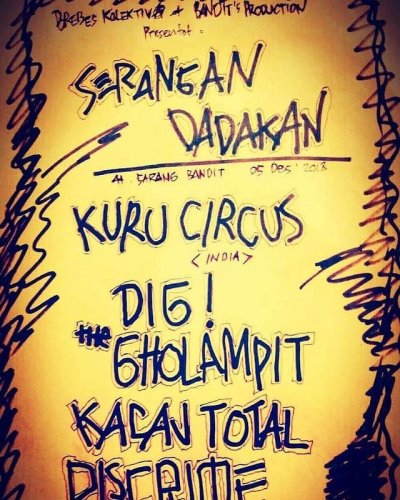 BREBES KOLEKTIVA + BANDIT'S PRODUCTION
Presentot :
SERANGAN
DADAKAN
At SARANG BANDIT 05 DES' 2018
KURU CIRCUS
< INDIA >
DIG !
the GHOLAMPIT
KACAU TOTAL
DISCRIME